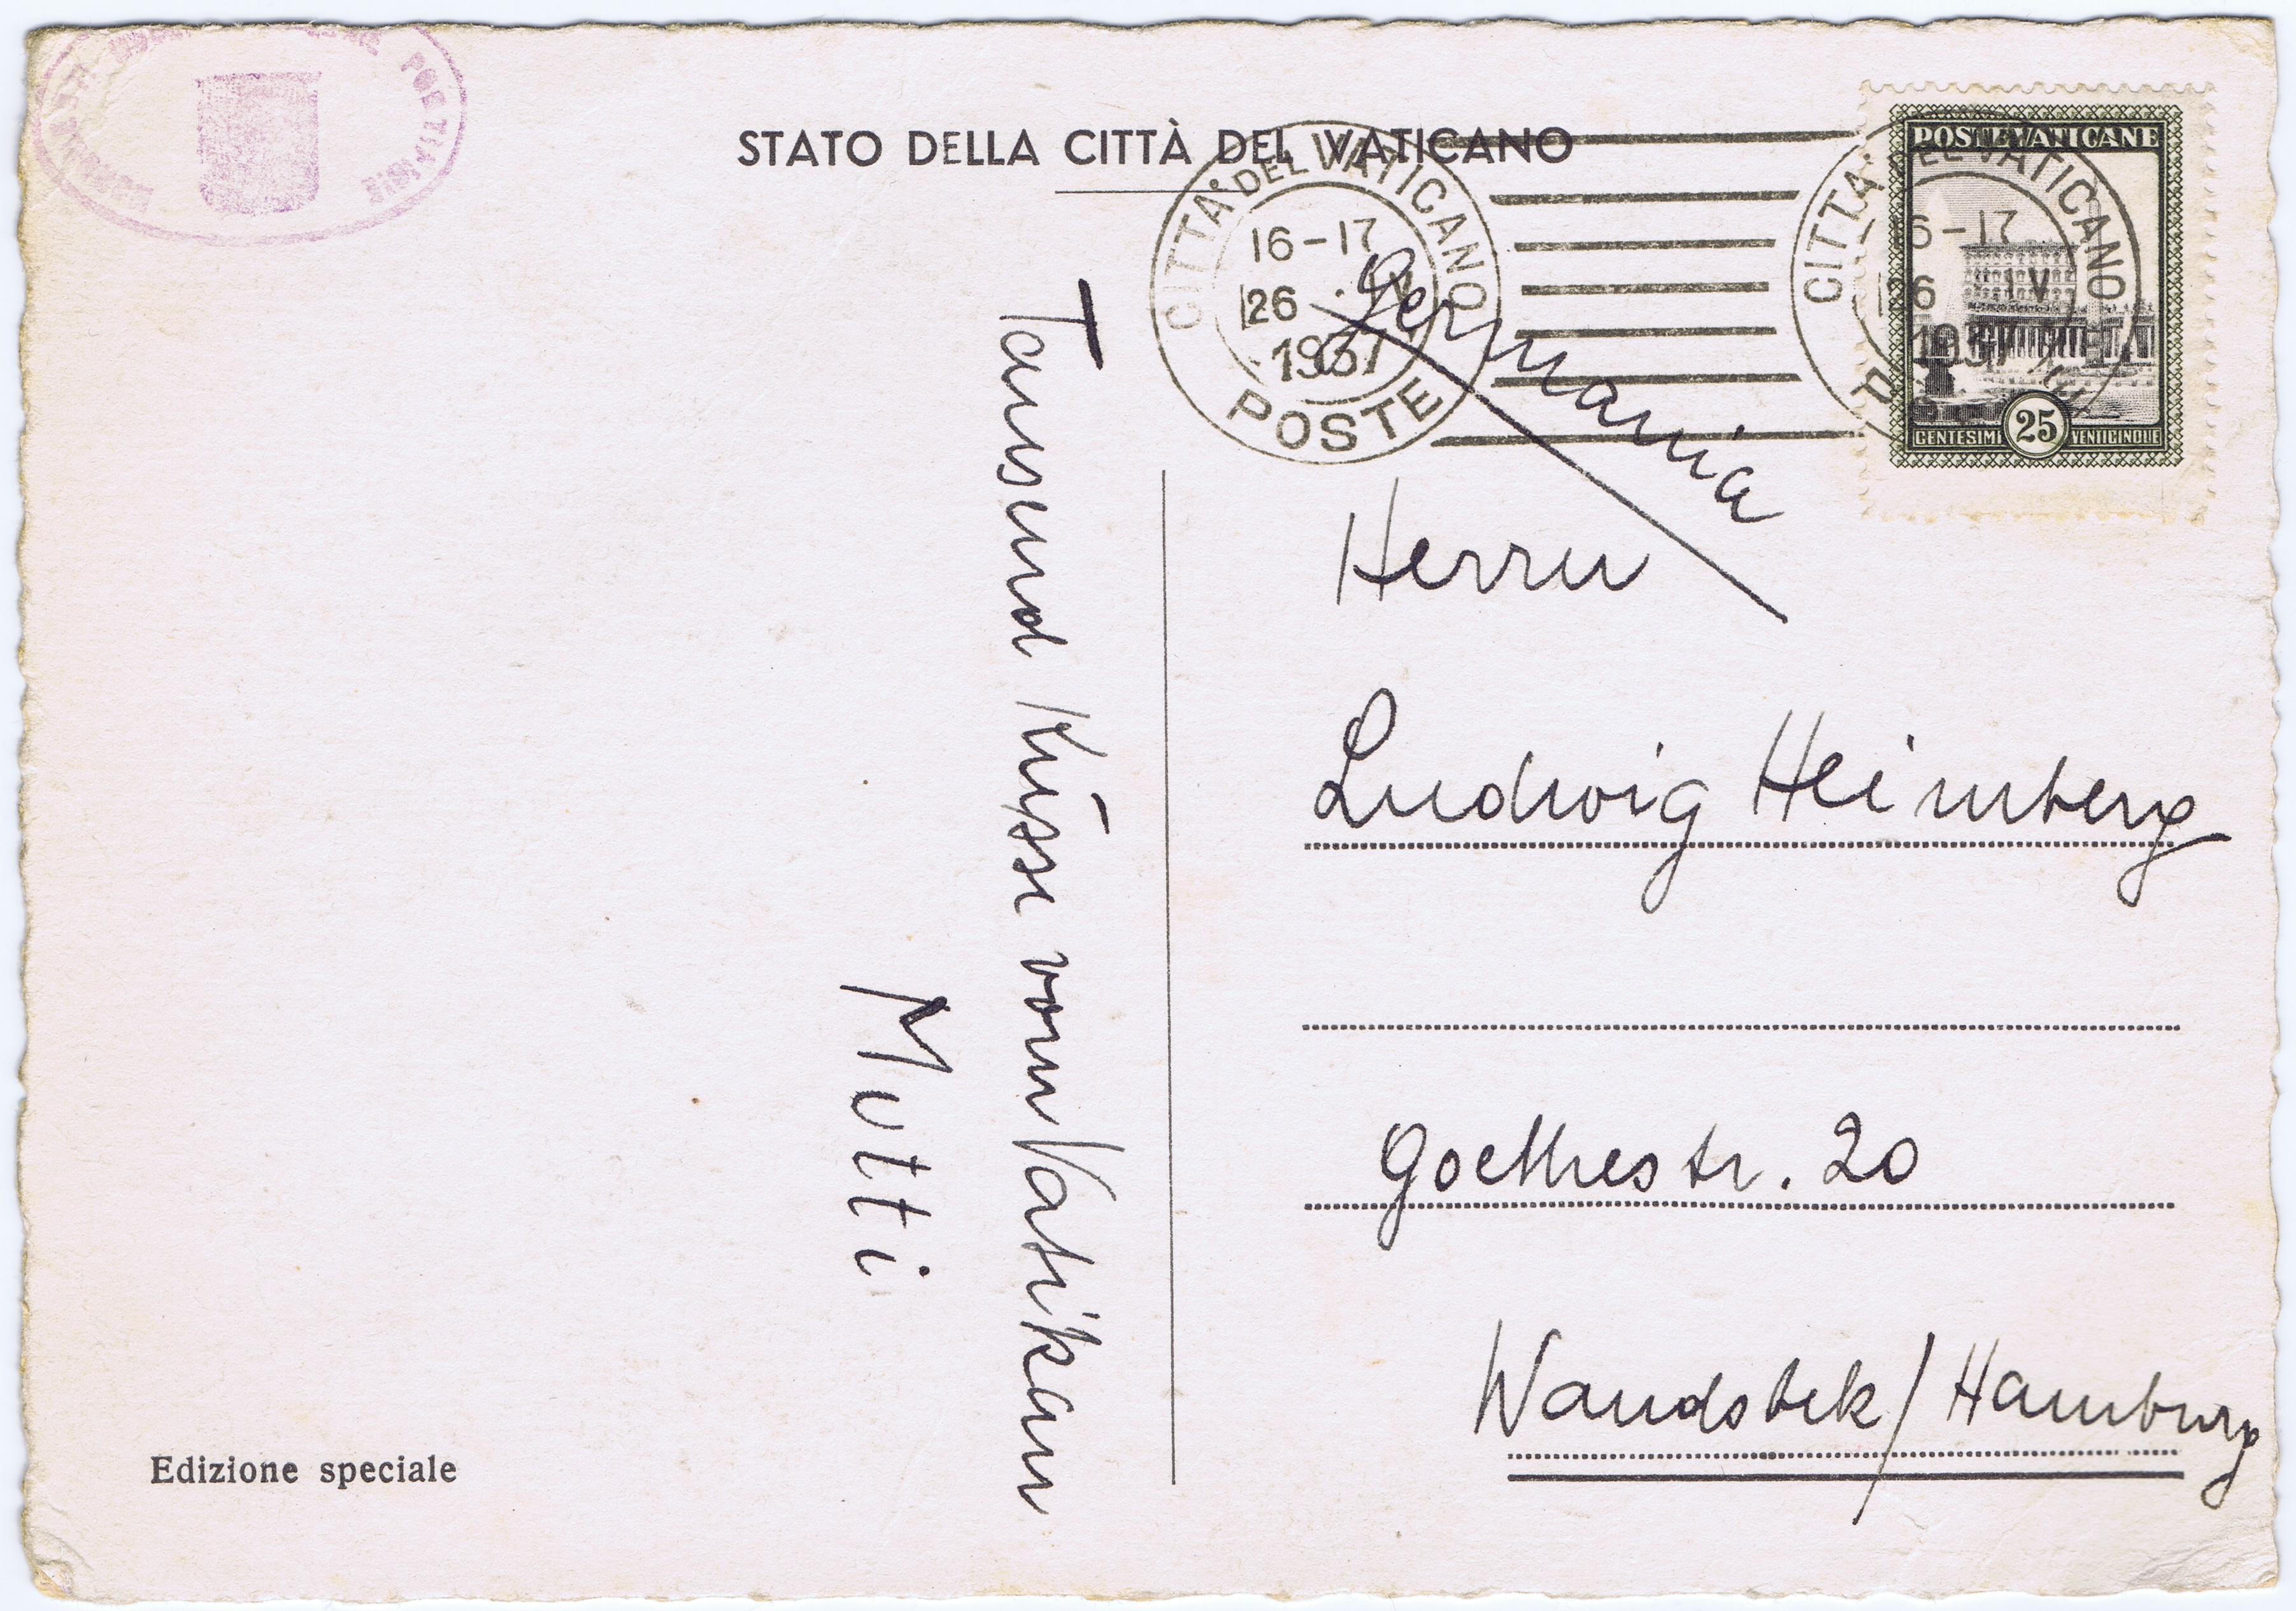 STATO DELLA CITTÀ DEL VATICANO
CITTA' DEL VATICANO
16-17
26 · IV
1937
POSTE
CITTA' DEL VATICANO
16-17
26 IV
1937
POSTE VATICANE
CENTESIMI 25 VENTICINQUE
Germania
Herrn
Ludwig Heimberg
Goethestr. 20
Wandsbek/Hamburg
Tausend Küsse vom Vatikan
Mutti
Edizione speciale